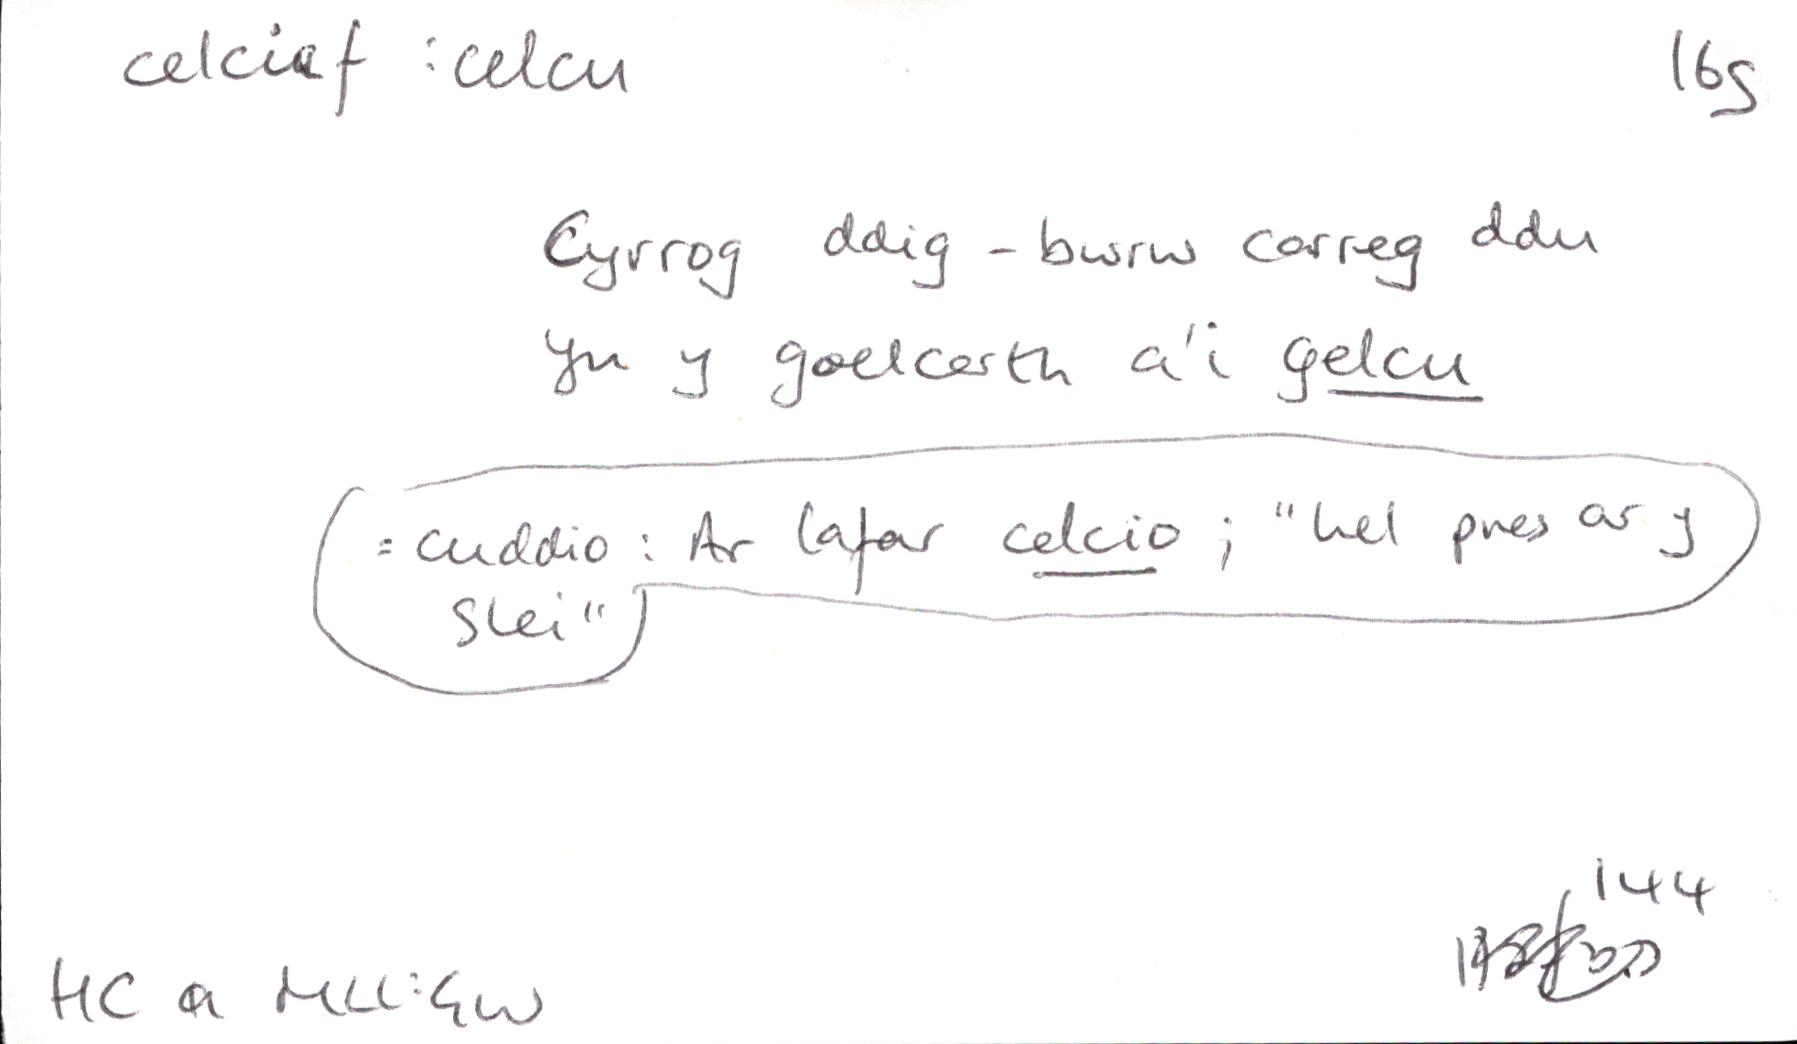 celciaf : celcu 16g
Cyrrog ddig - bwrw carreg ddu
yn y goelcerth a'i gelcu
= cuddio : Ar lafar celcio ; "hel pres ar y
slei"
144
HC a MLl : GW